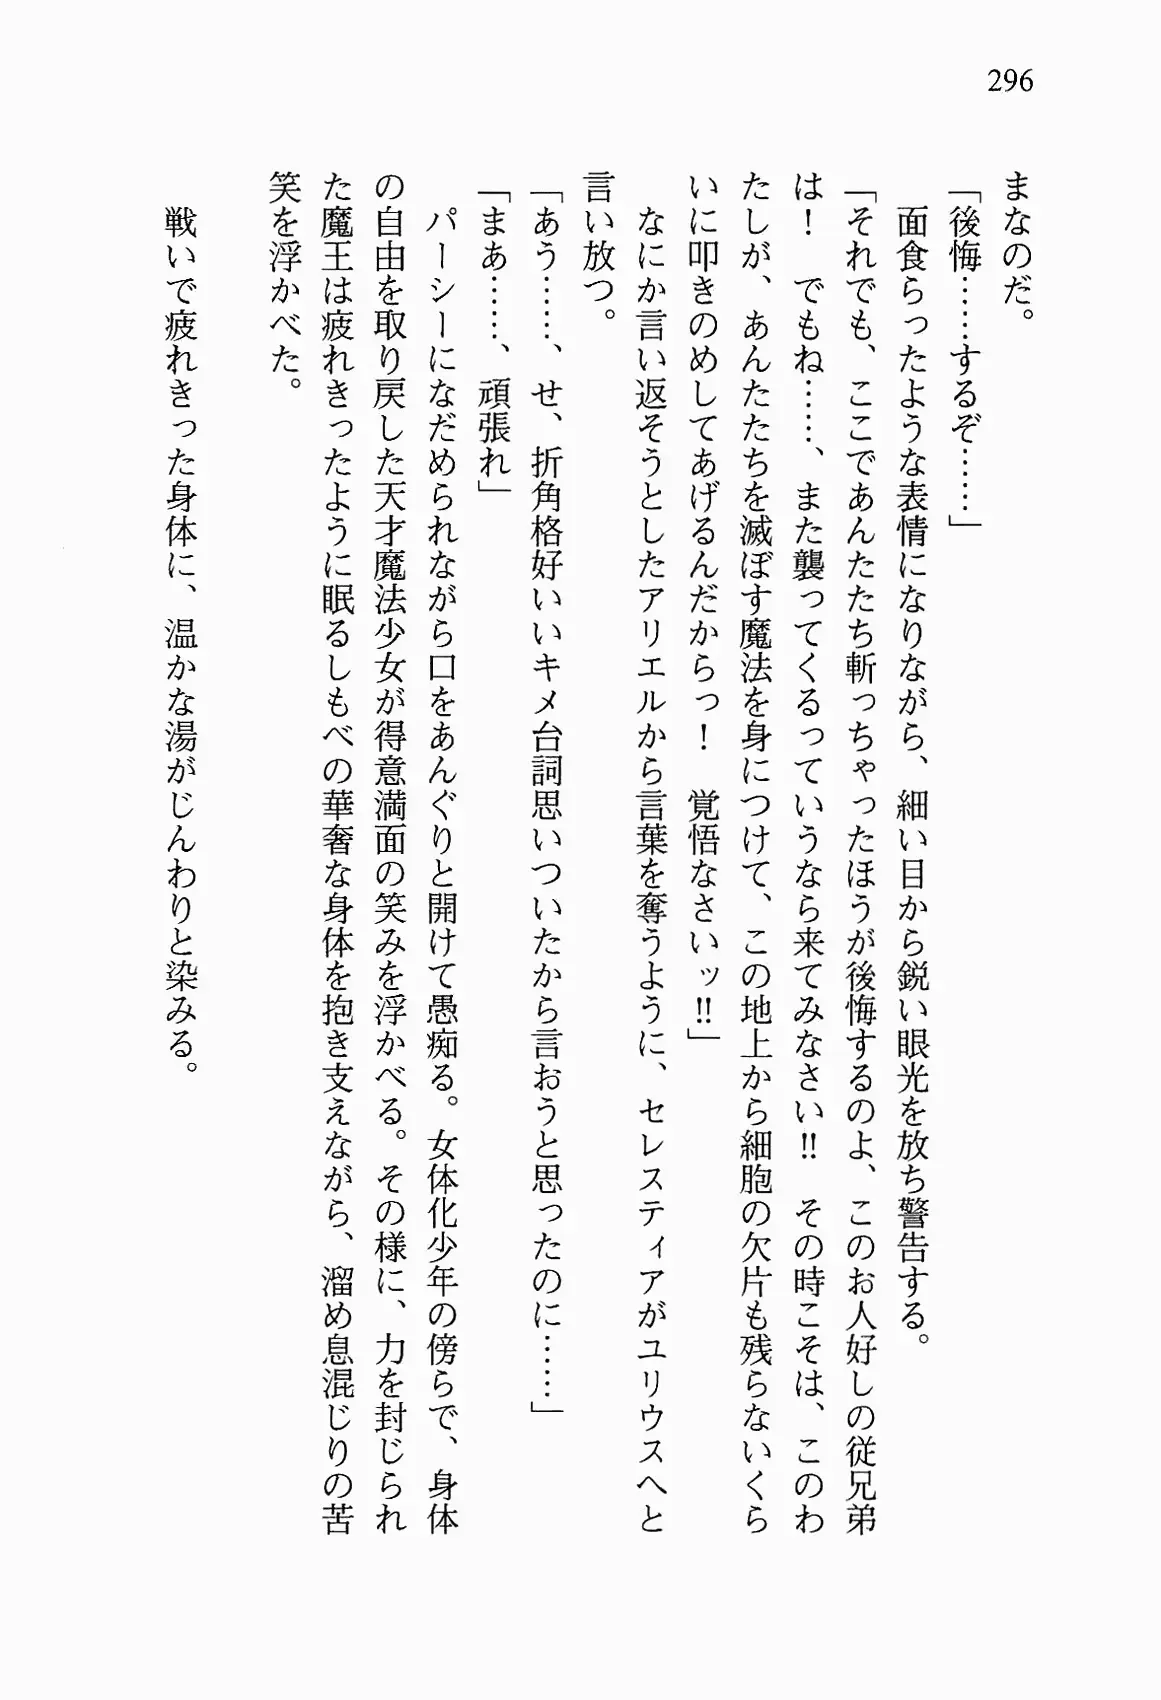 296
まなのだ。
「後悔……するぞ……」
　面食らったような表情になりながら、細い目から鋭い眼光を放ち警告する。
「それでも、ここであんたたち斬っちゃったほうが後悔するのよ、このお人好しの従兄弟
は！　でもね……、また襲ってくるっていうなら来てみなさい‼　その時こそは、このわ
たしが、あんたたちを滅ぼす魔法を身につけて、この地上から細胞の欠片も残らないくら
いに叩きのめしてあげるんだからっ！　覚悟なさいッ‼」
　なにか言い返そうとしたアリエルから言葉を奪うように、セレスティアがユリウスへと
言い放つ。
「あう……、せ、折角格好いいキメ台詞思いついたから言おうと思ったのに……」
「まあ……、頑張れ」
　パーシーになだめられながら口をあんぐりと開けて愚痴る。女体化少年の傍らで、身体
の自由を取り戻した天才魔法少女が得意満面の笑みを浮かべる。その様に、力を封じられ
た魔王は疲れきったように眠るしもべの華奢な身体を抱き支えながら、溜め息混じりの苦
笑を浮かべた。
　戦いで疲れきった身体に、温かな湯がじんわりと染みる。